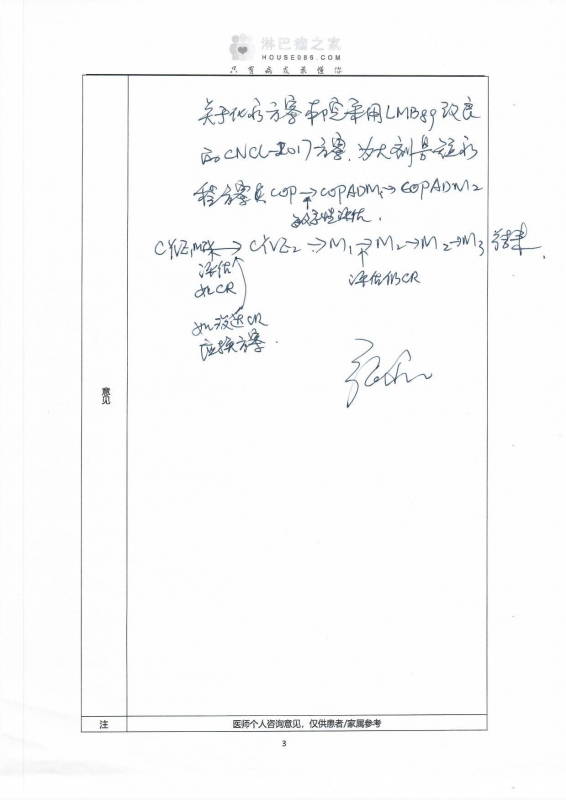 淋巴瘤之家
HOUSE086.COM
只有病友最懂你
关于化疗方案本院采用LMB89改良
的CNCL-2017方案,为大剂量短疗
程方案,COP→COPADM1→COPADM2
评估.
CYVE1→CYVE2→M1→M2→M2→M3结束.
评估 评估仍CR
如CR
如没达CR
应换方案.
意见
注 医师个人咨询意见,仅供患者/家属参考
3